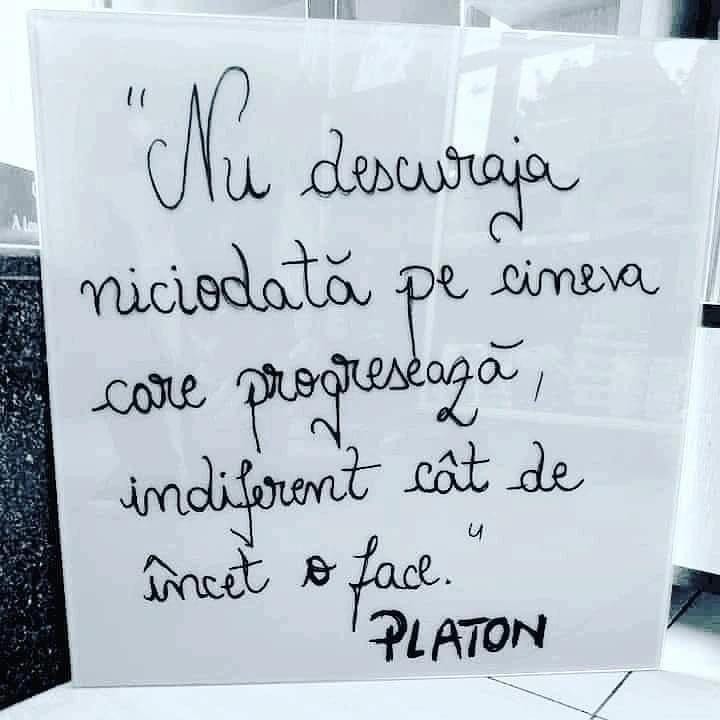 "Nu descuraja
niciodată pe cineva
care progresează,
indiferent cât de
încet o face."
PLATON